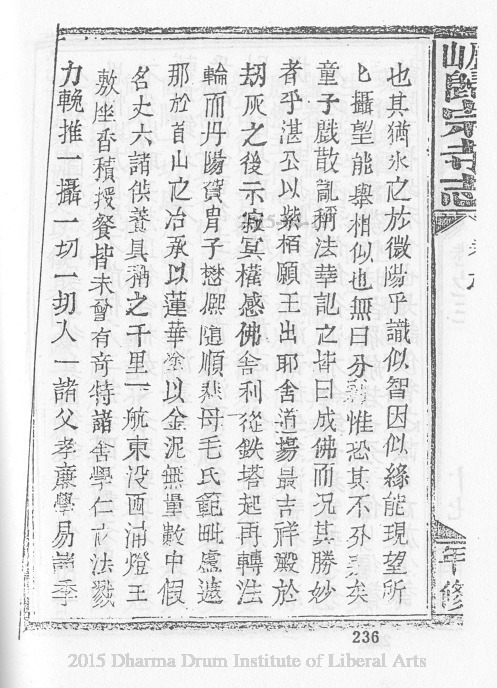 山歸宗寺志
卷
也其猶氷之於微陽乎識似智因似緣能現望所
匕攝望能舉相似也無曰分裂惟恐其不外義矣
童子戲散亂稱法華記之皆曰成佛而況其勝妙
者乎湛公以紫栢願王出耶舍道場最吉祥殿於
刼灰之後示寂冥權感佛舍利從鉄塔起再轉法
輪而丹陽賀胄子懋熈隨順悲母毛氏範毗盧遮
那於首山之冶承以蓮華塗以金泥無量數中假
名丈六諸供養具稱之千里一航東没西涌燈王
敷座香積授餐皆未曾有奇特諸舍學仁之法戮
力輓推一攝一切一切入一諸父孝廉學易諸季
年修
236
2015 Dharma Drum Institute of Liberal Arts